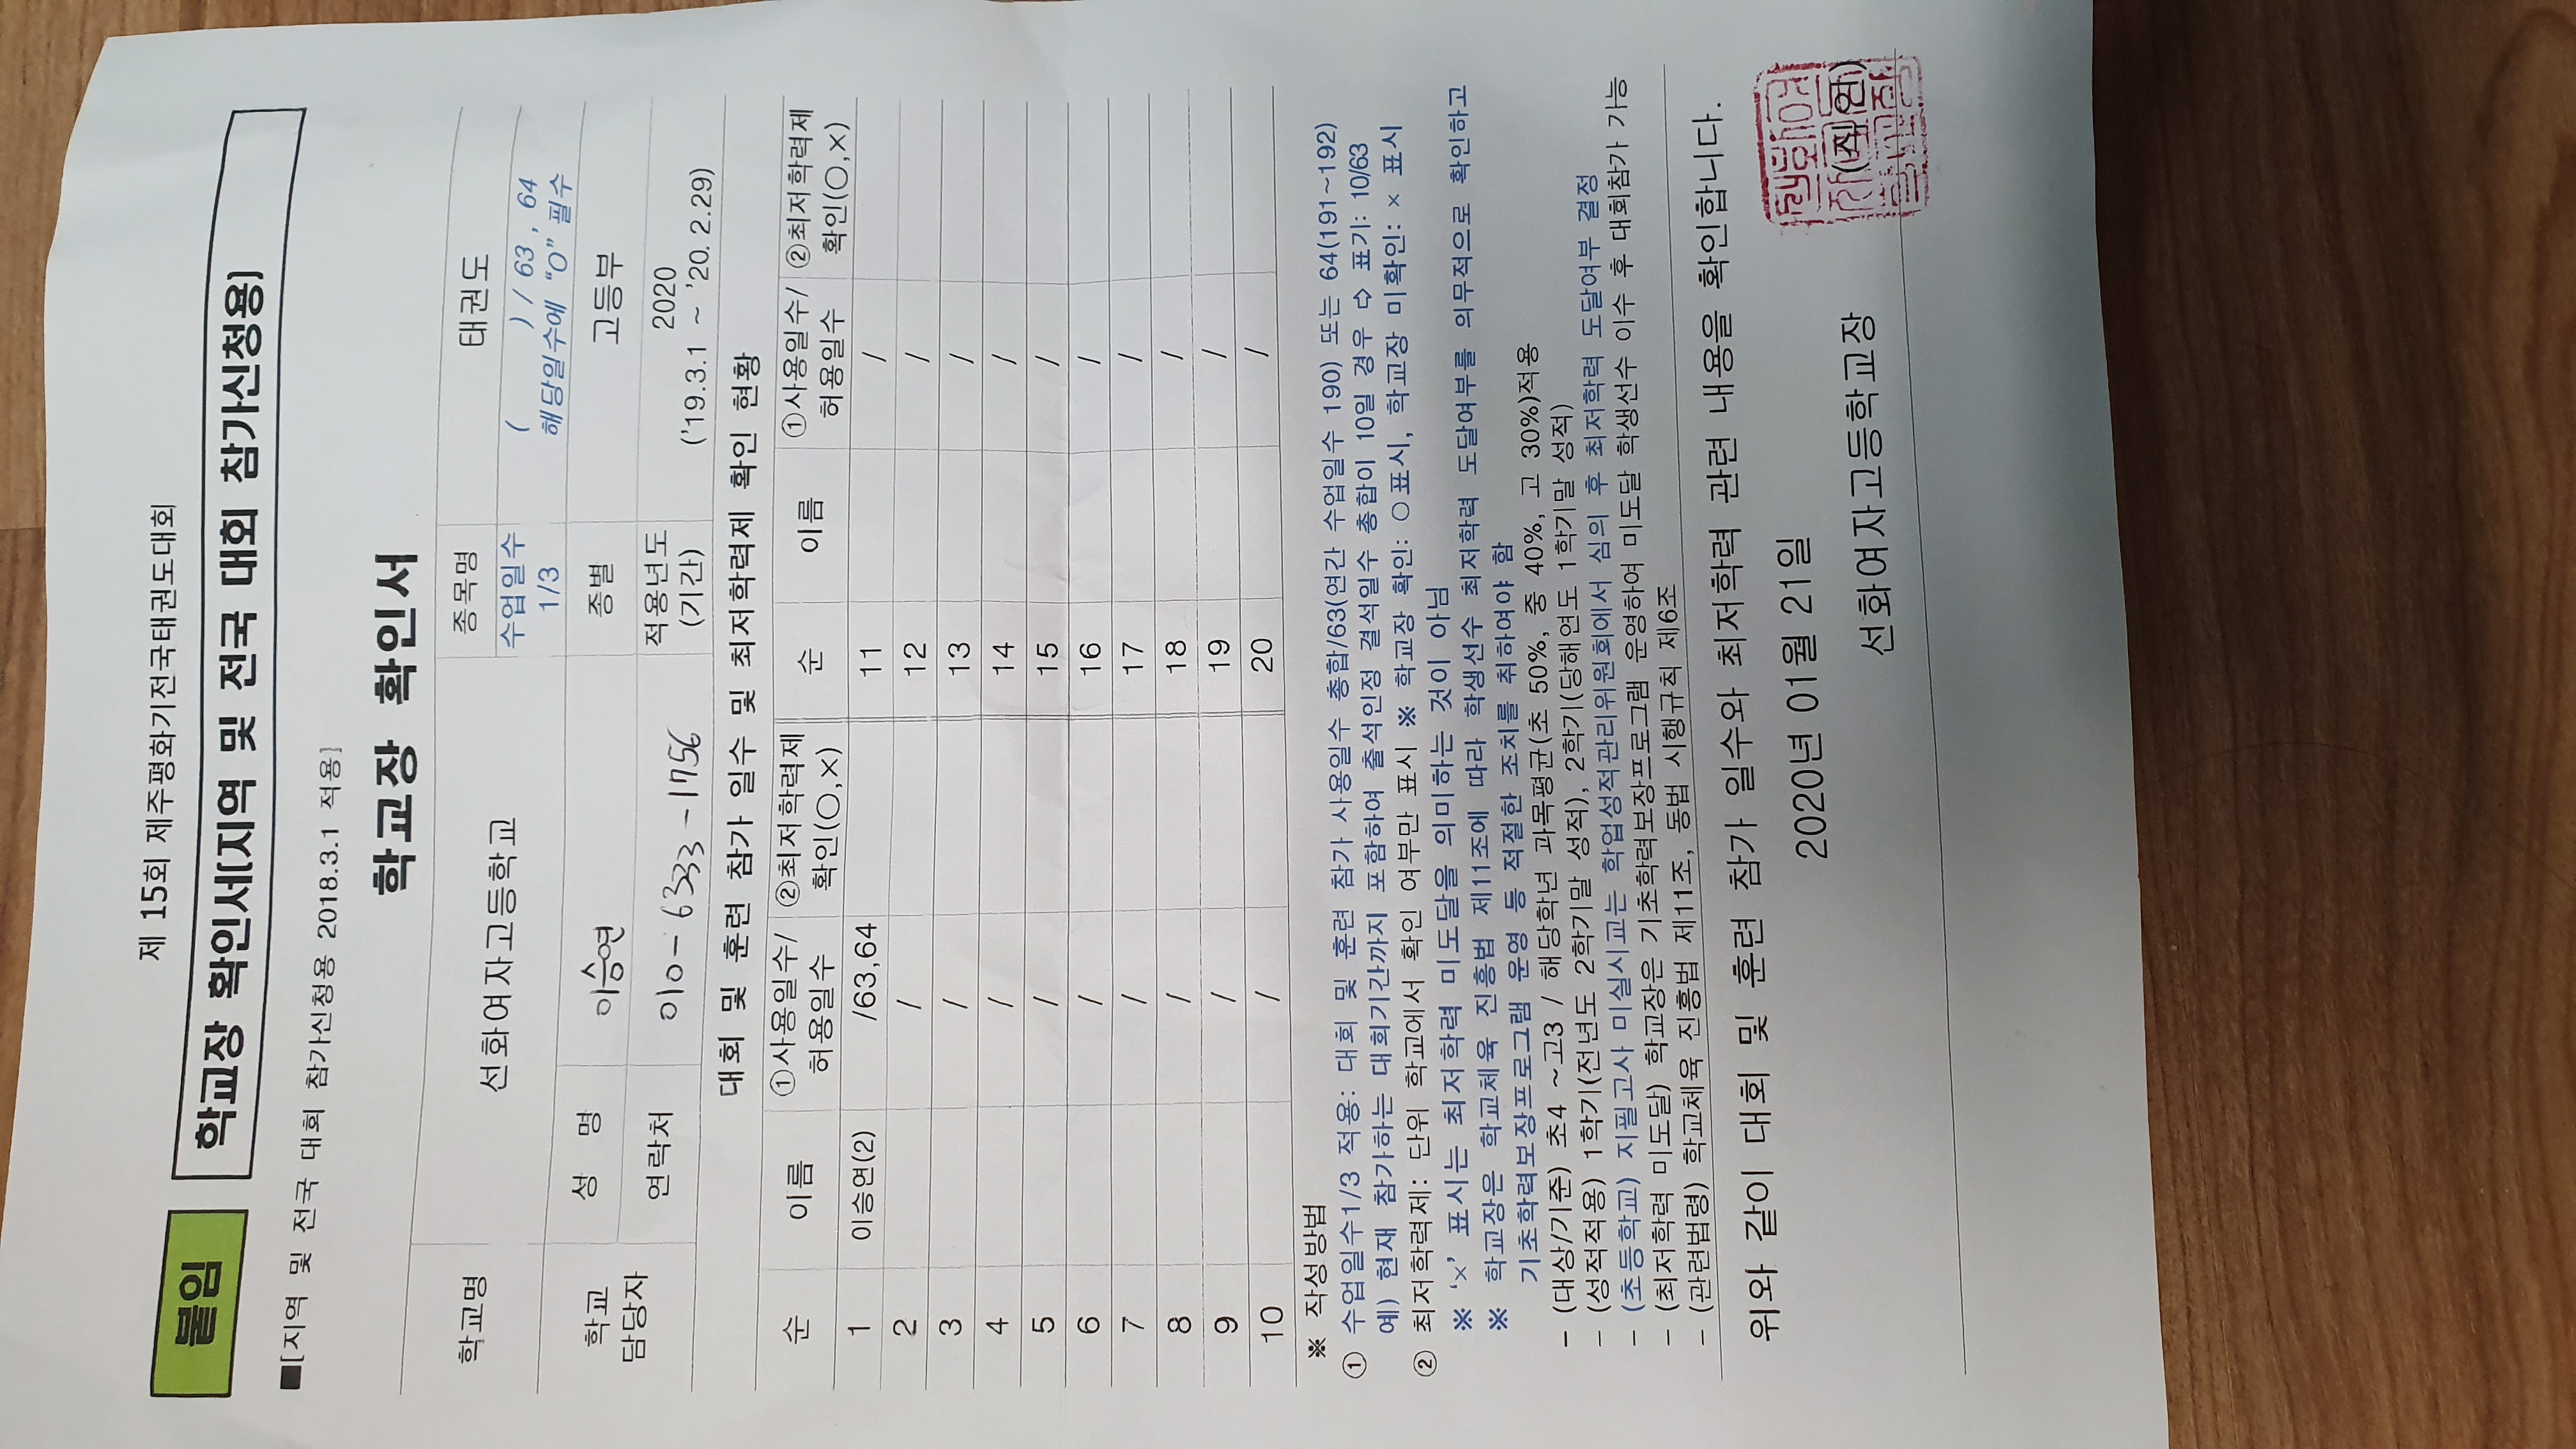 제 15회 제주평화기전국태권도대회
붙임
학교장 확인서(지역 및 전국 대회 참가신청용)
■[지역 및 전국 대회 참가신청용 2018.3.1 적용]
학교장 확인서
학교명 선화여자고등학교 종목명 태권도
수업일수 1/3 ( ) / 63 , 64
해당일수에 "O" 필수
학교 담당자 성 명 이승연 종별 고등부
연락처 010-6333-1756 적용년도 (기간) 2020
('19.3.1 ~ '20.2.29)
대회 및 훈련 참가 일수 및 최저학력제 확인 현황
순 이름 ①사용일수/허용일수 ②최저학력제 확인(○,×) 순 이름 ①사용일수/허용일수 ②최저학력제 확인(○,×)
1 이승연(2) /63,64 11 /
2 / 12 /
3 / 13 /
4 / 14 /
5 / 15 /
6 / 16 /
7 / 17 /
8 / 18 /
9 / 19 /
10 / 20 /
※ 작성방법
① 수업일수1/3 적용: 대회 및 훈련 참가 사용일수 총합/63(연간 수업일수 190) 또는 64(191~192)
예) 현재 참가하는 대회기간까지 포함하여 출석인정 결석일수 총합이 10일 경우 ⇨ 표기: 10/63
② 최저학력제: 단위 학교에서 확인 여부만 표시 ※ 학교장 확인: ○표시, 학교장 미확인: × 표시
※ '×' 표시는 최저학력 미도달을 의미하는 것이 아님
※ 학교장은 학교체육 진흥법 제11조에 따라 학생선수 최저학력 도달여부를 의무적으로 확인하고
기초학력보장프로그램 운영 등 적절한 조치를 취하여야 함
- (대상/기준) 초4 ~고3 / 해당학년 과목평균(초 50%, 중 40%, 고 30%)적용
- (성적적용) 1학기(전년도 2학기말 성적), 2학기(당해연도 1학기말 성적)
- (초등학교) 지필고사 미실시교는 학업성적관리위원회에서 심의 후 최저학력 도달여부 결정
- (최저학력 미도달) 학교장은 기초학력보장프로그램 운영하여 미도달 학생선수 이수 후 대회참가 가능
- (관련법령) 학교체육 진흥법 제11조, 동법 시행규칙 제6조
위와 같이 대회 및 훈련 참가 일수와 최저학력 관련 내용을 확인합니다.
2020년 01월 21일
선화여자고등학교장 (직인)